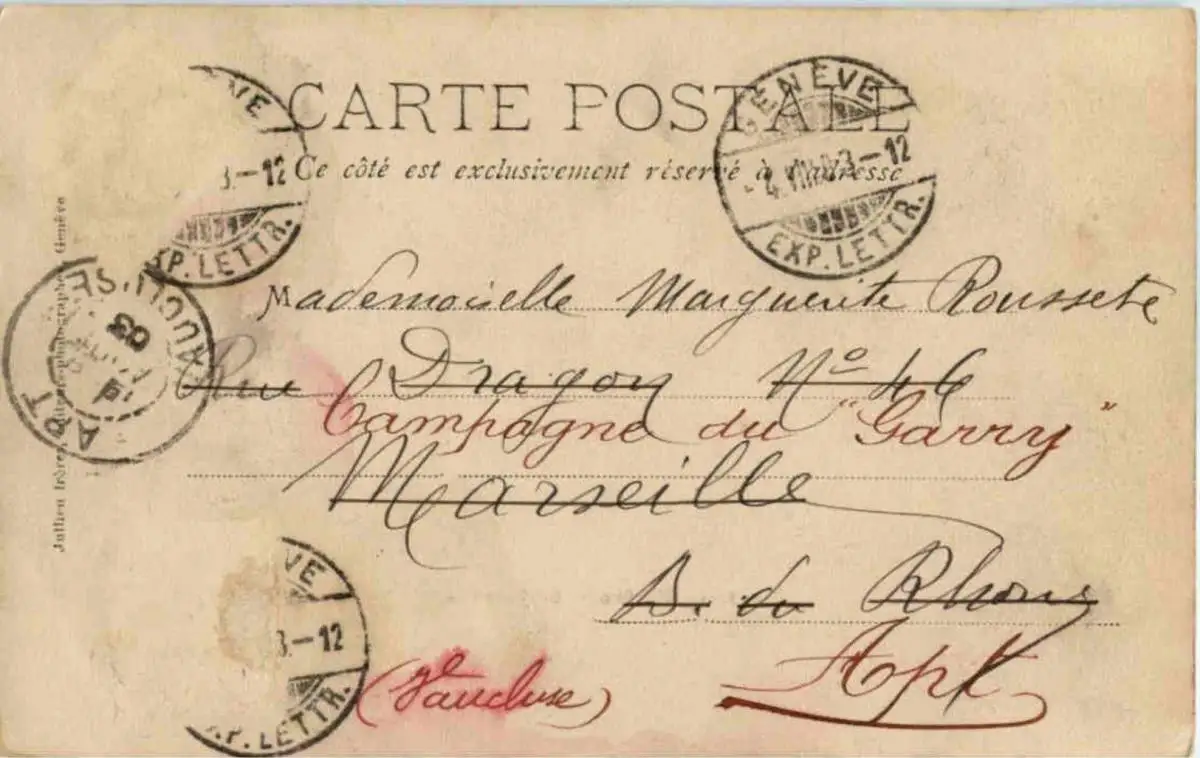 CARTE POSTALE
Ce côté est exclusivement réservé à l'adresse
GENÈVE
4.VIII.03-12
EXP. LETTR.
VE
3.-12
XP. LETTR.
Mademoiselle Marguerite Roussete
Rue Dragon No 46
Campagne du "Garry"
Marseille
B. du Rhone
Apt
(Vaucluse)
VE
3.-12
XP. LETTR.
APT
VAUCLUSE
03
Jullien frères
Genève